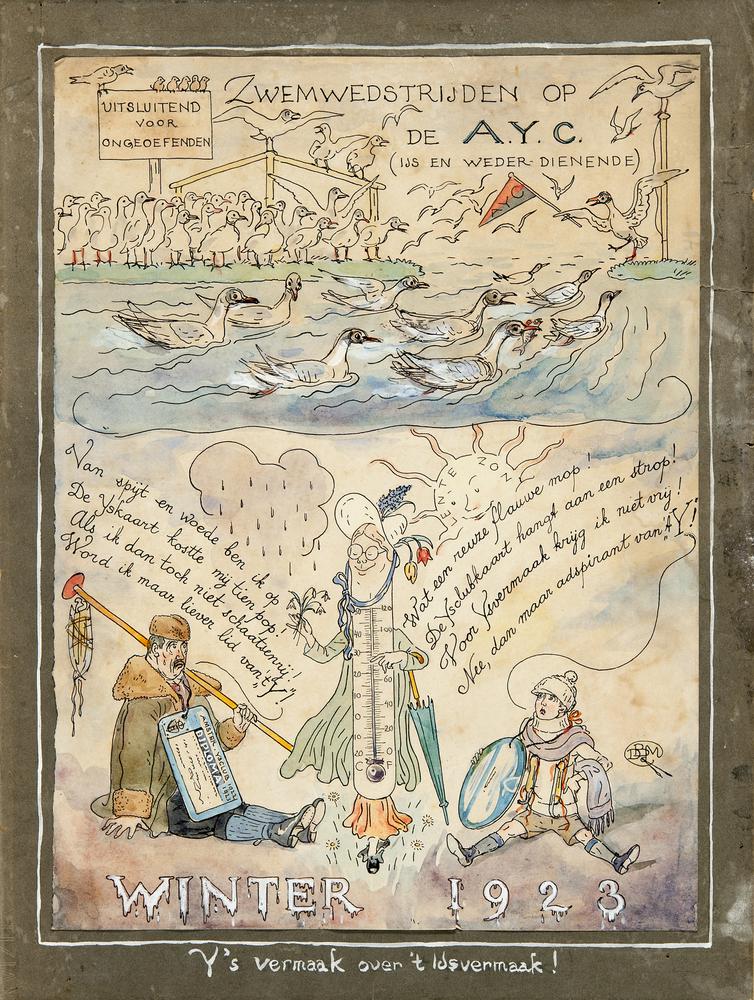 UITSLUITEND
VOOR
ONGEOEFENDEN
ZWEMWEDSTRIJDEN OP
DE A.Y.C.
(IJS EN WEDER-DIENENDE)
Van spijt en woede ben ik op
De Yskaart kostte mij tien pop!
Als ik dan toch niet schaatsenrij!
Word ik maar liever lid van "t Y"!
LENTE ZON
Wat een reuze flauwe mop!
De Ysclubkaart hangt aan een strop!
Voor Ysvermaak krijg ik niet vrij!
Nee, dan maar adspirant van "t Y"!
DIPLOMA
C F
WINTER 1923
Y's vermaak over 't IJsvermaak!